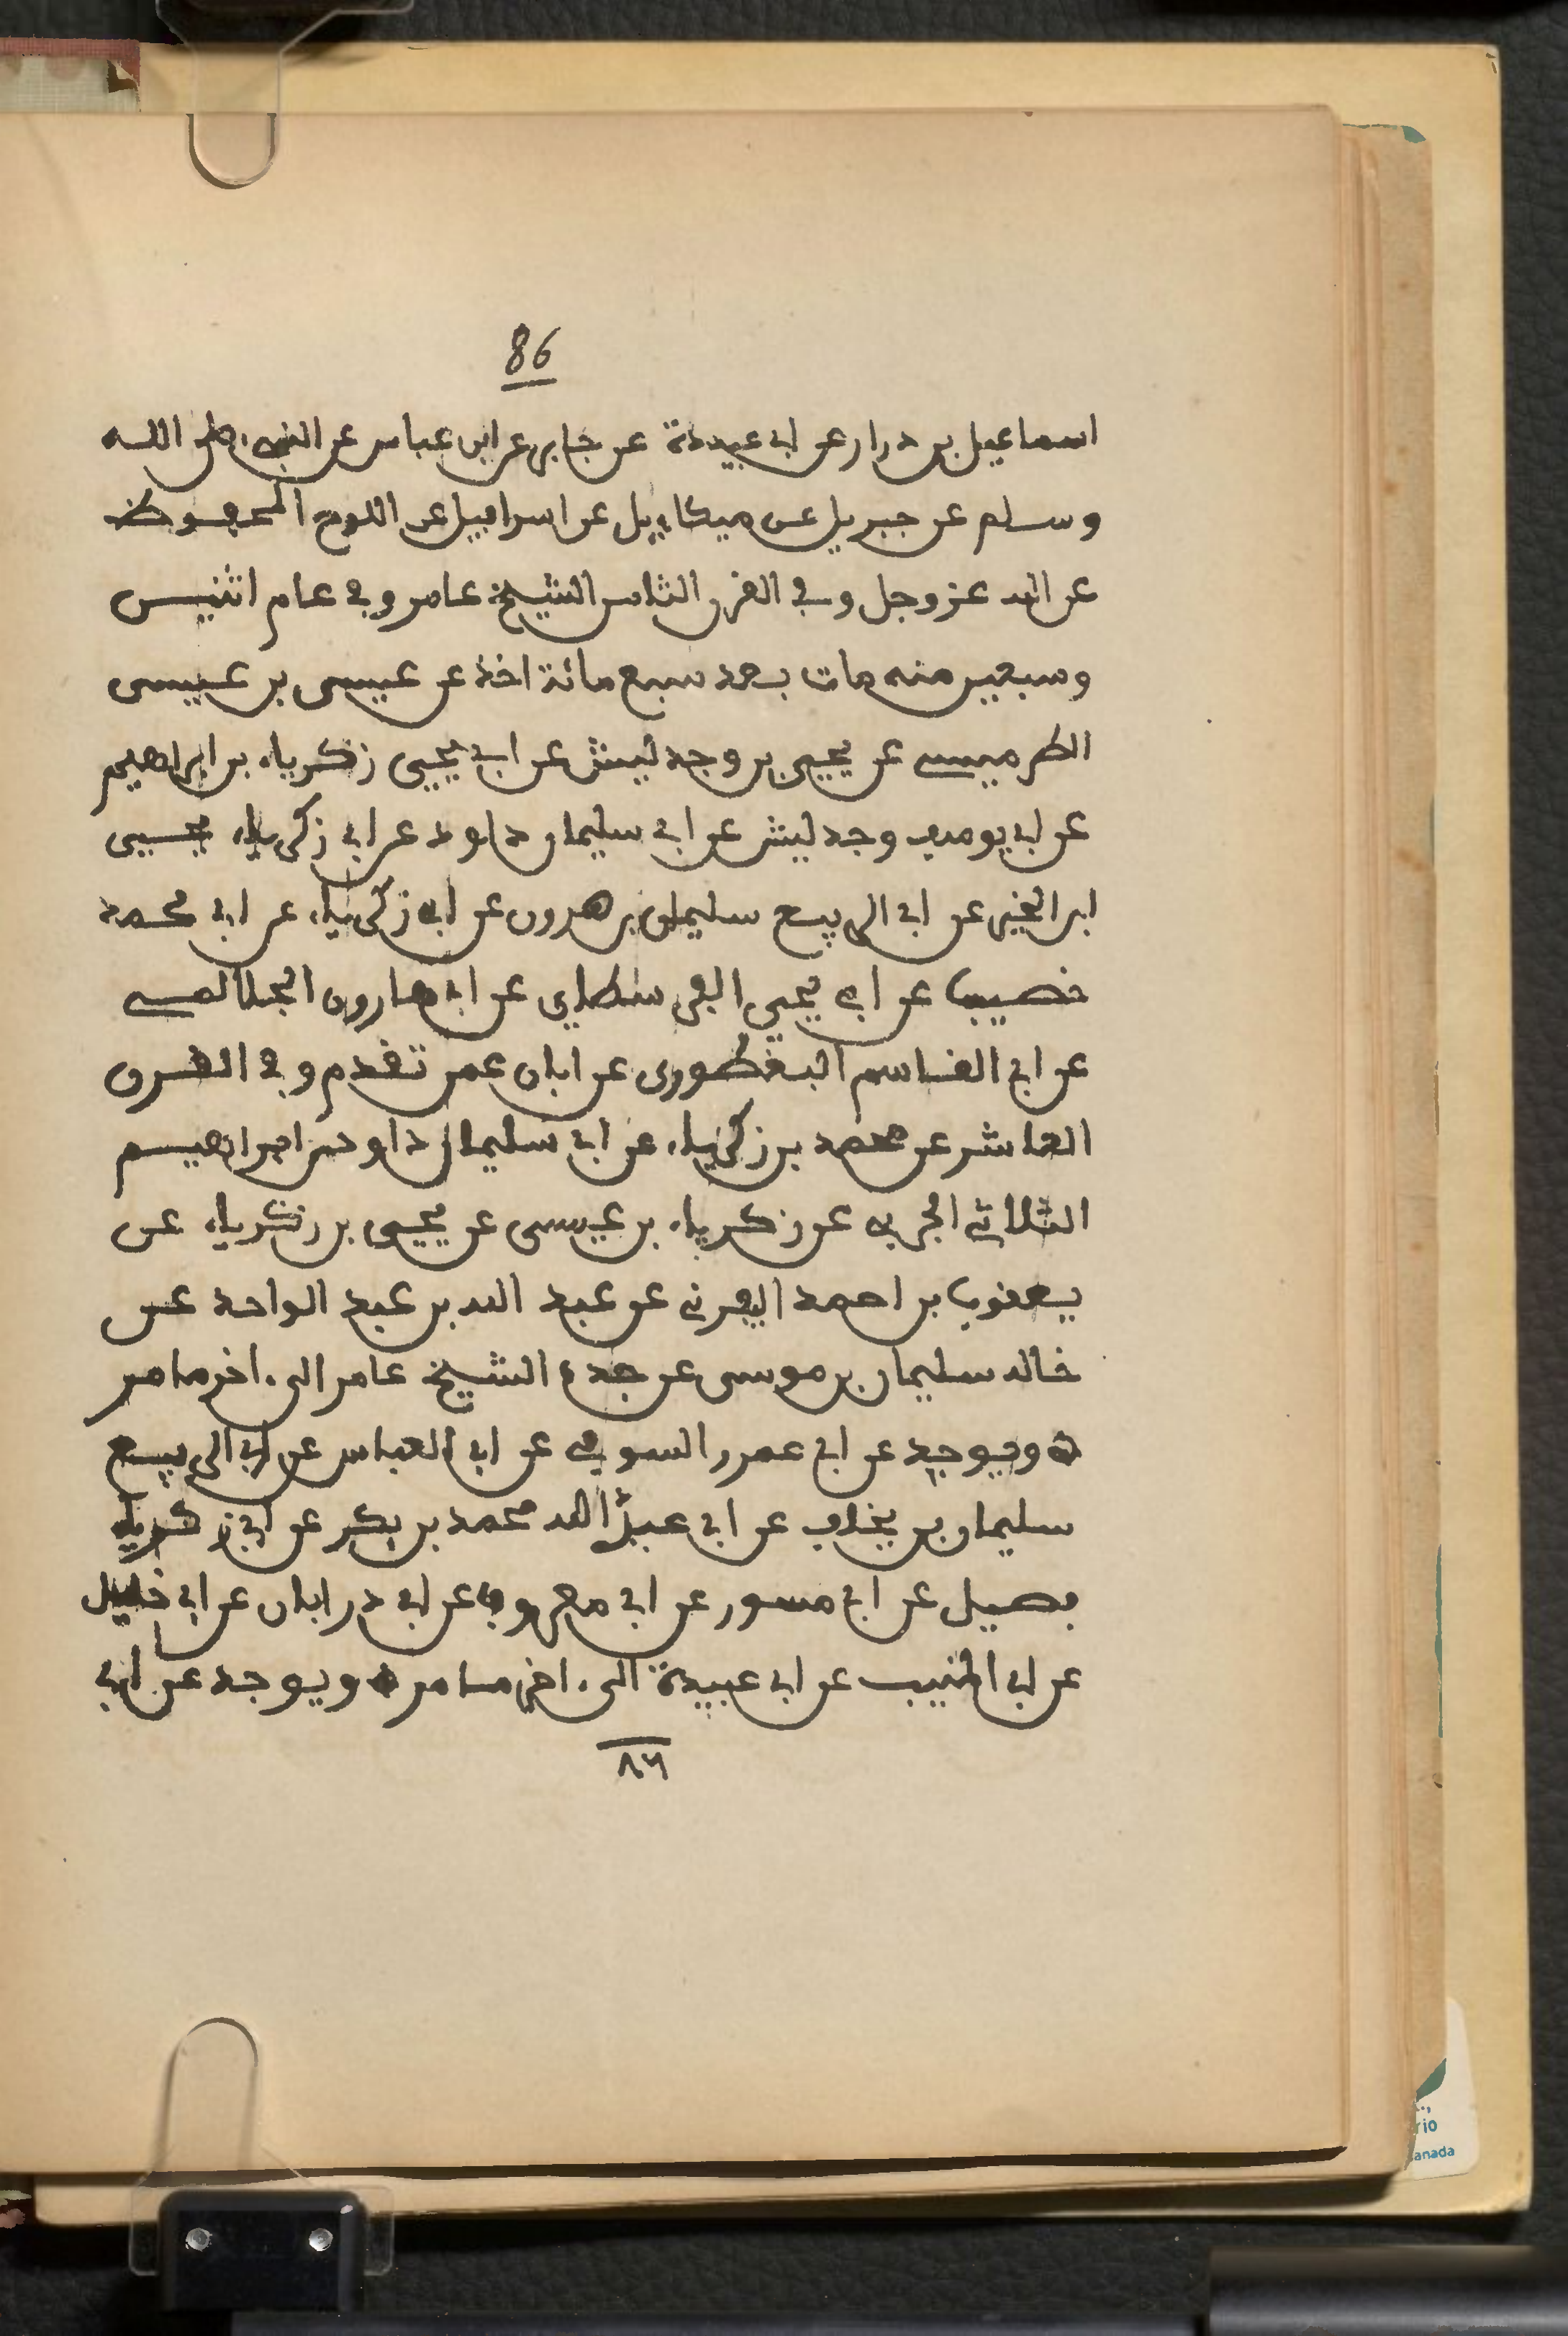 86
اسماعيل بن درار عن ابي عبيدة عن جابر عن ابن عباس عن النبيء صلى الله
وسلم عن جبريل عن ميكاءيل عن اسرافيل عن اللوح المحفوظ
عن الله عز وجل وفي القرن الثامن الشيخ عامر وفي عام اثنين
وسبعين منه مات بعد سبع مائة اخذ عن عيسى بن عيسى
الطرميسي عن يحيى بن وجدليش عن ابي يحيى زكرياء بن ابراهيم
عن ابي يوسف وجدليش عن ابي سليمان داود عن ابي زكرياء يحيى
ابن الخير عن ابي الربيع سليمان بن هرون عن ابي زكرياء عن ابي محمد
خصيب عن ابي يحيى الفرسطاي عن ابي هارون الجلالمي
عن ابي القاسم البغطوري عن ابان عمن تقدم وفي القرن
العاشر عن محمد بن زكرياء عن ابي سليمان داود بن ابراهيم
الثلاثي الجربي عن زكرياء بن عيسى عن يحيى بن زكرياء عن
يعقوب بن احمد اليفرني عن عبد الله بن عبد الواحد عن
خاله سليمان بن موسى عن جده الشيخ عامر الى ءاخر ما مر
ه ويوجد عن ابي عمرو السوفي عن ابي العباس عن ابي الربيع
سليمان بن يخلف عن ابي عبد الله محمد بن بكر عن ابي زكرياء
فصيل عن ابي مسور عن ابي معروف عن ابي ذر ابان عن ابي خليل
عن ابي المنيب عن ابي عبيدة الى ءاخر ما مر ه ويوجد عن ابي
٨٦